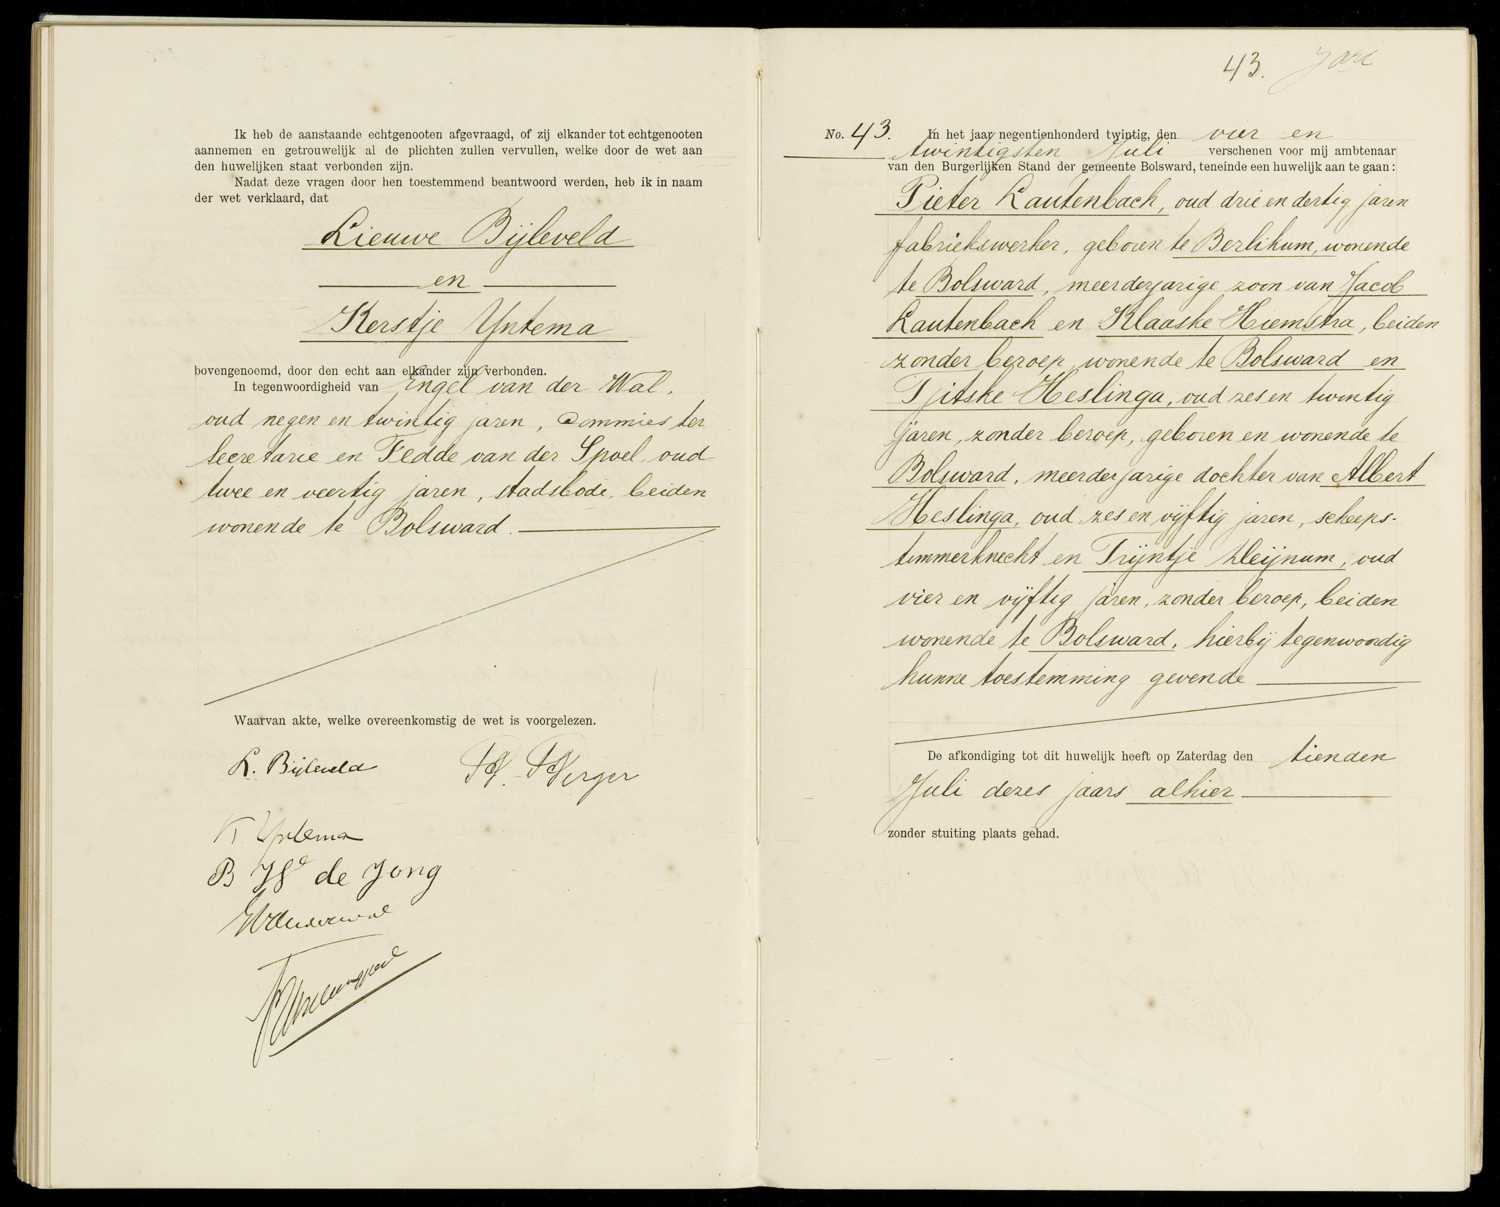 Ik heb de aanstaande echtgenooten afgevraagd, of zij elkander tot echtgenooten
aannemen en getrouwelijk al de plichten zullen vervullen, welke door de wet aan
den huwelijken staat verbonden zijn.
Nadat deze vragen door hen toestemmend beantwoord werden, heb ik in naam
der wet verklaard, dat
Lieuwe Bijleveld
en
Kerstje Yntema
bovengenoemd, door den echt aan elkander zijn verbonden.
In tegenwoordigheid van Engel van der Wal,
oud negen en twintig jaren, commies ter
secretarie en Fedde van der Spoel, oud
twee en veertig jaren, stadsbode, beiden
wonende te Bolsward.
Waarvan akte, welke overeenkomstig de wet is voorgelezen.
L. Bijleveld
K. Yntema
de Jong
43.
No. 43. In het jaar negentienhonderd twintig, den vier en
twintigsten Juli verschenen voor mij ambtenaar
van den Burgerlijken Stand der gemeente Bolsward, teneinde een huwelijk aan te gaan:
Pieter Lautenbach, oud drie en dertig jaren
fabriekswerker, geboren te Berlikum, wonende
te Bolsward, meerderjarige zoon van Jacob
Lautenbach en Klaaske Hiemstra, beiden
zonder beroep, wonende te Bolsward en
Tjitske Heslinga, oud zes en twintig
jaren, zonder beroep, geboren en wonende te
Bolsward, meerderjarige dochter van Albert
Heslinga, oud zes en vijftig jaren, scheeps-
timmerknecht en Trijntje Kleijnum, oud
vier en vijftig jaren, zonder beroep, beiden
wonende te Bolsward, hierbij tegenwoordig
hunne toestemming gevende
De afkondiging tot dit huwelijk heeft op Zaterdag den tienden
Juli dezes jaars alhier
zonder stuiting plaats gehad.